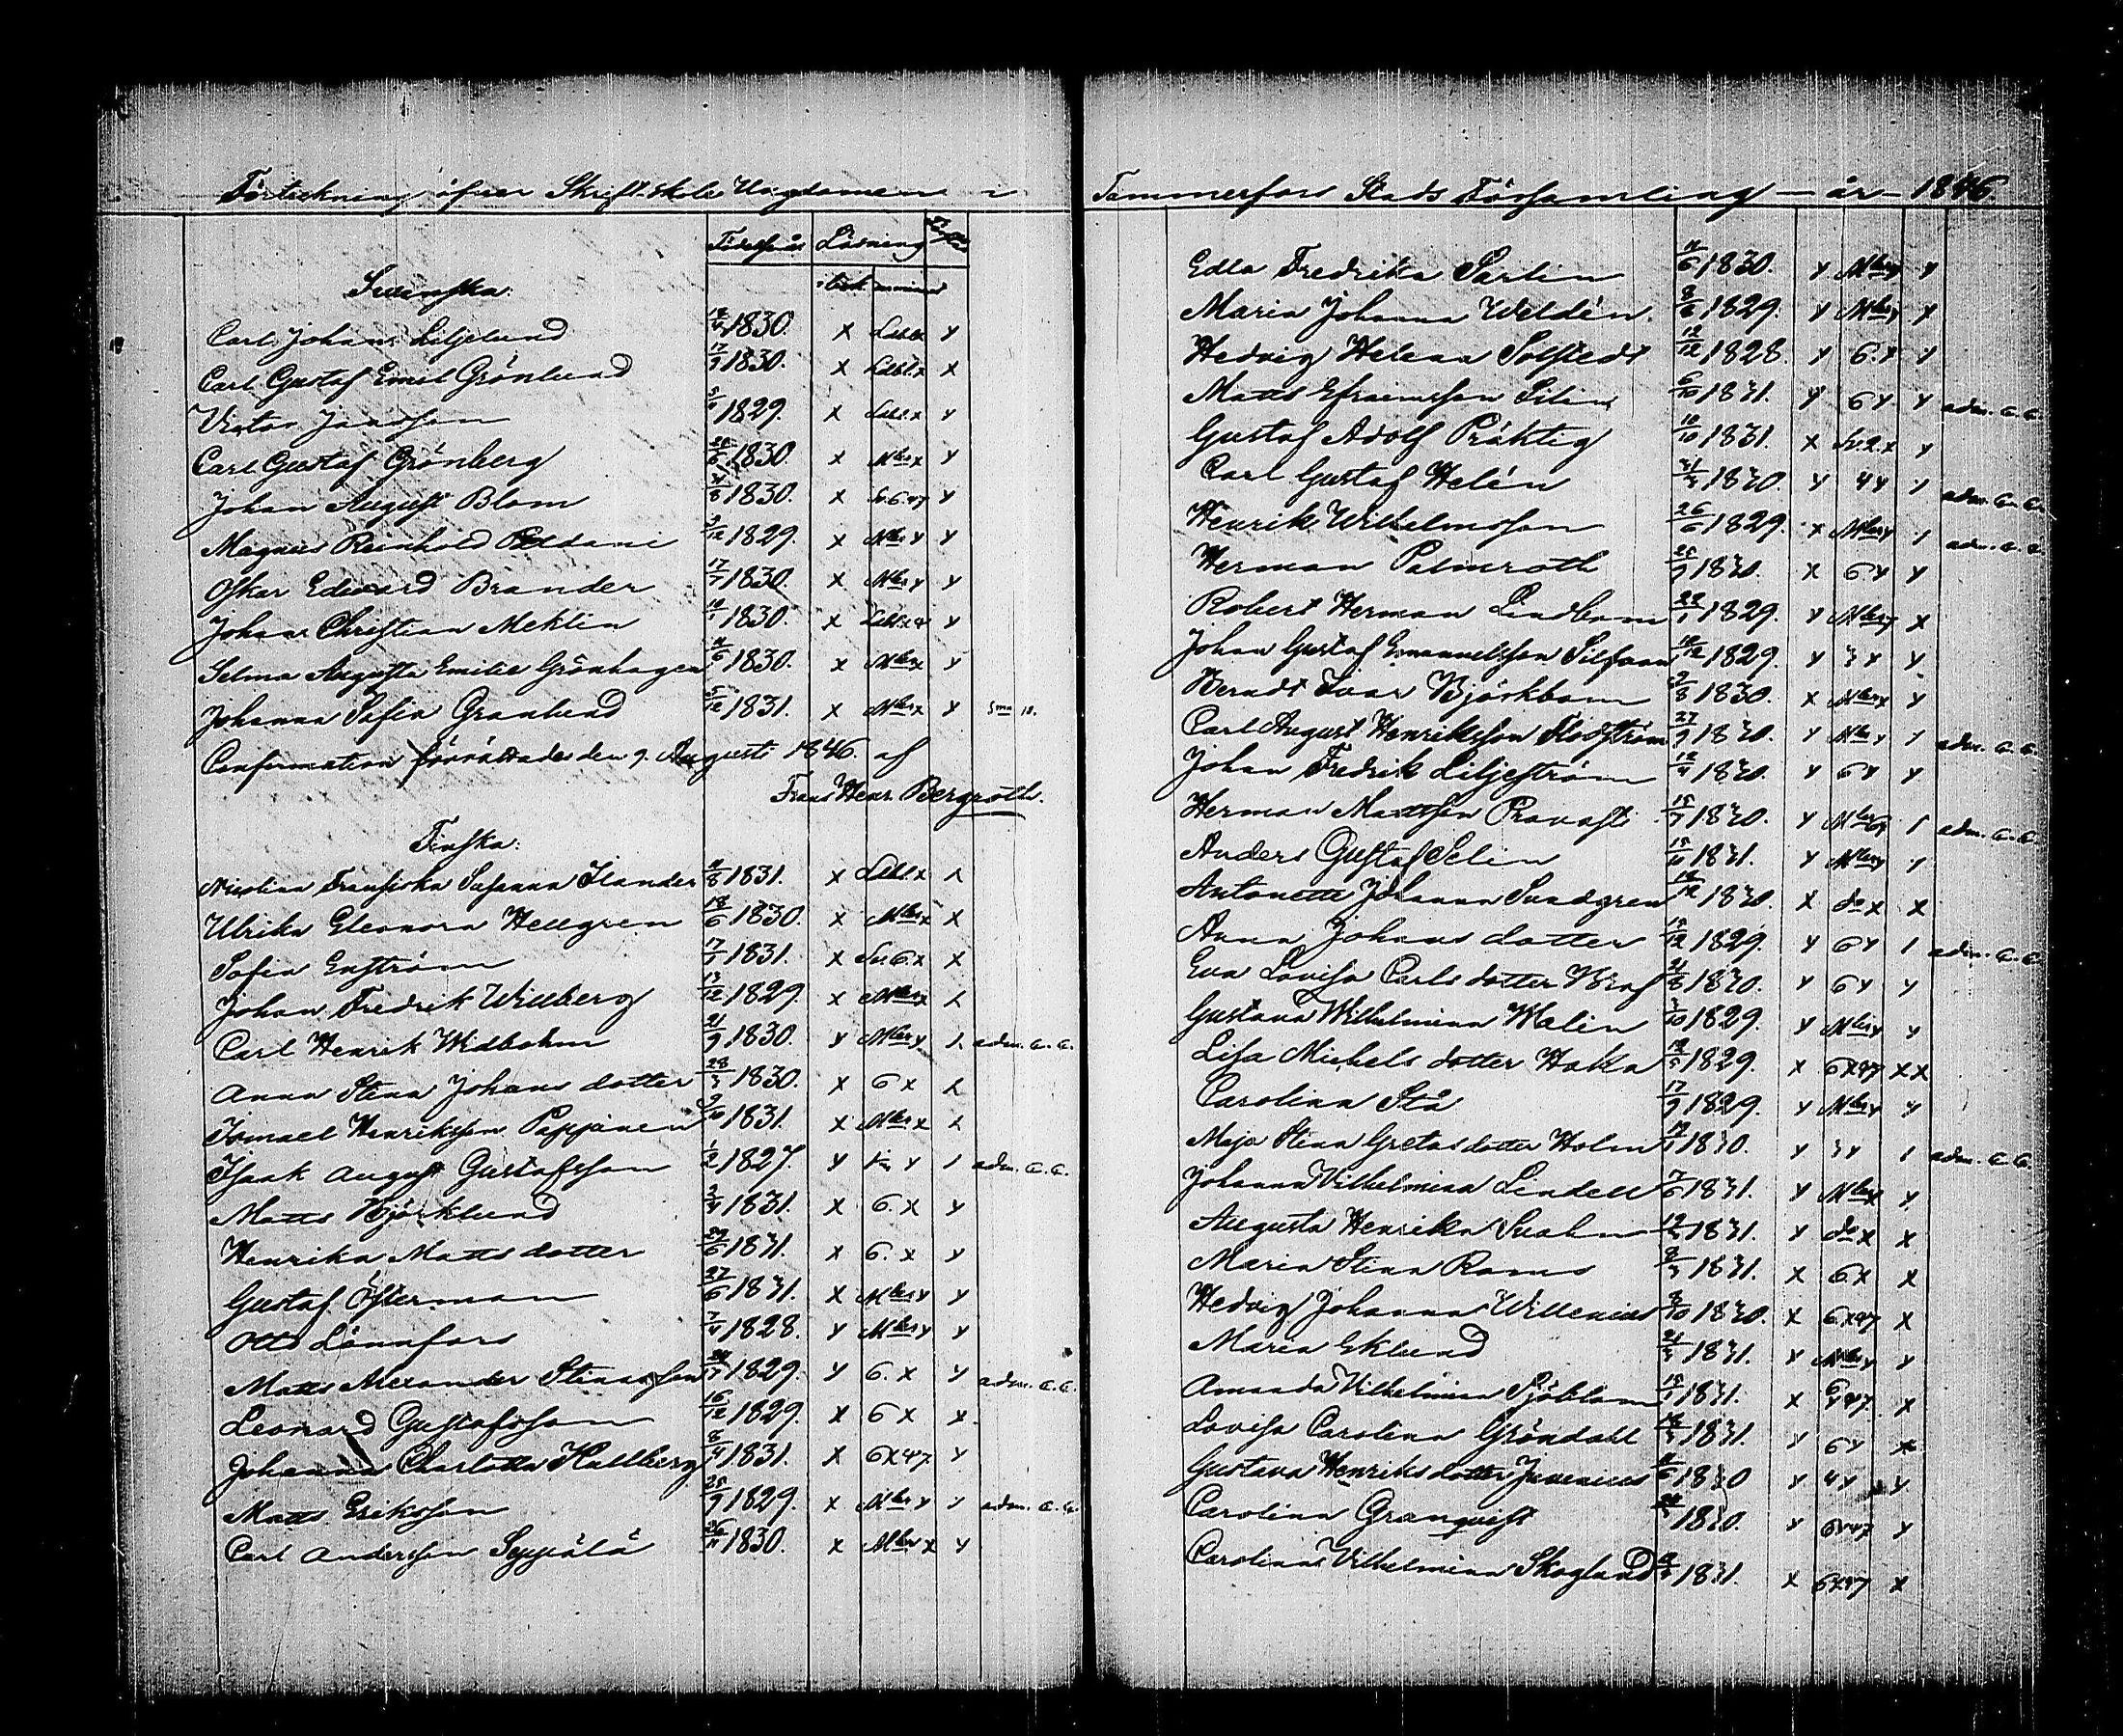 Förteckning öfver Skriftskole Ungdomen i
Tammerfors Stads Församling – år – 1846.
Födelseår Läsning
i bok minnet
Svenska.
Carl Johan Liljelund 1830. x y
Carl Gustaf Emil Grönlund 17/9 1830. x x
Victor 1829. x y
Carl Gustaf Grönberg 1830. x Mkes x y
Johan August Blom 1830. x Sv. 6. 47 y
Magnus Reinhold 1829. x Mkes y y
Oskar Edvard Brander 17/7 1830. x Mkes y y
Johan Christian Meklin 1830. x y
Selma Augusta Emilie Grönhagen 1830. x Mkes x y
Johanna Sofia Granlund 5/12 1831. x Mkes x y
Confirmation förrättades den 9. Augusti 1846. af
Frans Henr. Bergroth.
Finska:
Nicolina Fransiska Susanna Ilander 1831. x x
Ulrika Eleonora Hellgren 18/6 1830. x Mkes x x
Sofia Enström 1831. x Sv. 6. x x
Johan Fredrik Willberg 13/12 1829. x Mkes x
Carl Henrik Widbohm 21/9 1830. y Mkes y adm. C. C.
Anna Stina Johans dotter 28/3 1830. x 6 x
Ismael Henriksson Pappinen 9/10 1831. x Mkes x
Isaak August Gustafsson 1/2 1827. y y adm. C. C.
Matts Björklund 1831. x 6. x y
Henrika Matts dotter 29/6 1831. x 6. x y
Gustaf Österman 27/6 1831. x Mkes y y
Otto Lönnfors 7/4 1828. y Mkes y y
Matts Alexander Stinasson 1829. y 6. x y adm. C. C.
Leonard Gustafsson 16/12 1829. x 6 x x
Johanna Charlotta Hallberg 8/4 1831. x 6 x 47 y
Matts Eriksson 25/9 1829. x Mkes y y adm. C. C.
Carl Andersson Seppälä 26/11 1830. x Mkes x y
Edla Fredrika Sarlin 1830. y Mkes y y
Maria Johanna Weldén. 8/6 1829. y Mkes y y
Hedvig Helena Solstedt 12/12 1828. y 6. x y
Matts Efraimsson Silin 6/10 1831. y 6 y y adm. C. C.
Gustaf Adolf Präktig 10/10 1831. x Sv. 2. x y
Carl Gustaf Helén 1830. y 4 y y adm. C. C.
Henrik Wilhelmsson 26/6 1829. x Mkes y adm. C. C.
Herman Palmroth 25/9 1830. x 6 y y
Robert Herman Lindbom 1829. y Mkes y x
Johan Gustaf Emanuelsson Silfvan 1829 y 3 x y
Berndt Ivar Björkbom 1830. x Mkes x y
Carl August Henriksson Flodström 27/9 1830. y Mkes y adm. C. C.
Johan Fredrik Liljeström 1830. y 6 y y
Herman Mattsson Pravasti 15/7 1830. y adm. C. C.
Anders Gustaf Selin 15/10 1831. y Mkes y
Antonette Johanna Sundgren 1830. x do x x
Anna Johans dotter 1829. y 6 y adm. C. C.
Eva Lovisa Carls dotter 21/8 1830. y 6 y y
Gustava Wilhelmina Malin 1829. y Mkes y y
Lisa Michels dotter Haka 1829. x 6 x 47 x x
Carolina Stå 17/9 1829. y Mkes y y
Maja Stina Gretas dotter Holm 1830. y 3 y adm. C. C.
Johanna Vilhelmina Lindell 7/6 1831. y Mkes x y
Augusta Henrika Svahn 1831. y do x x
Maria Stina Roms 1831. x 6 x x
Hedvig Johanna Willenius 8/10 1830. x 6 x 47 x
Maria Eklund 21/3 1831. y Mkes y y
Amanda Vilhelmina Sjöblom 1831. x 6 y 47 x
Lovisa Carolina Gröndahl 1831. y 6 y x
Gustava Henriks dotter Juvenius 1830 y 4 y y
Carolina Granqvist 1830. y 6 y 47 y
Carolina Vilhelmina Skoglund 1831. x 6 x 47 x